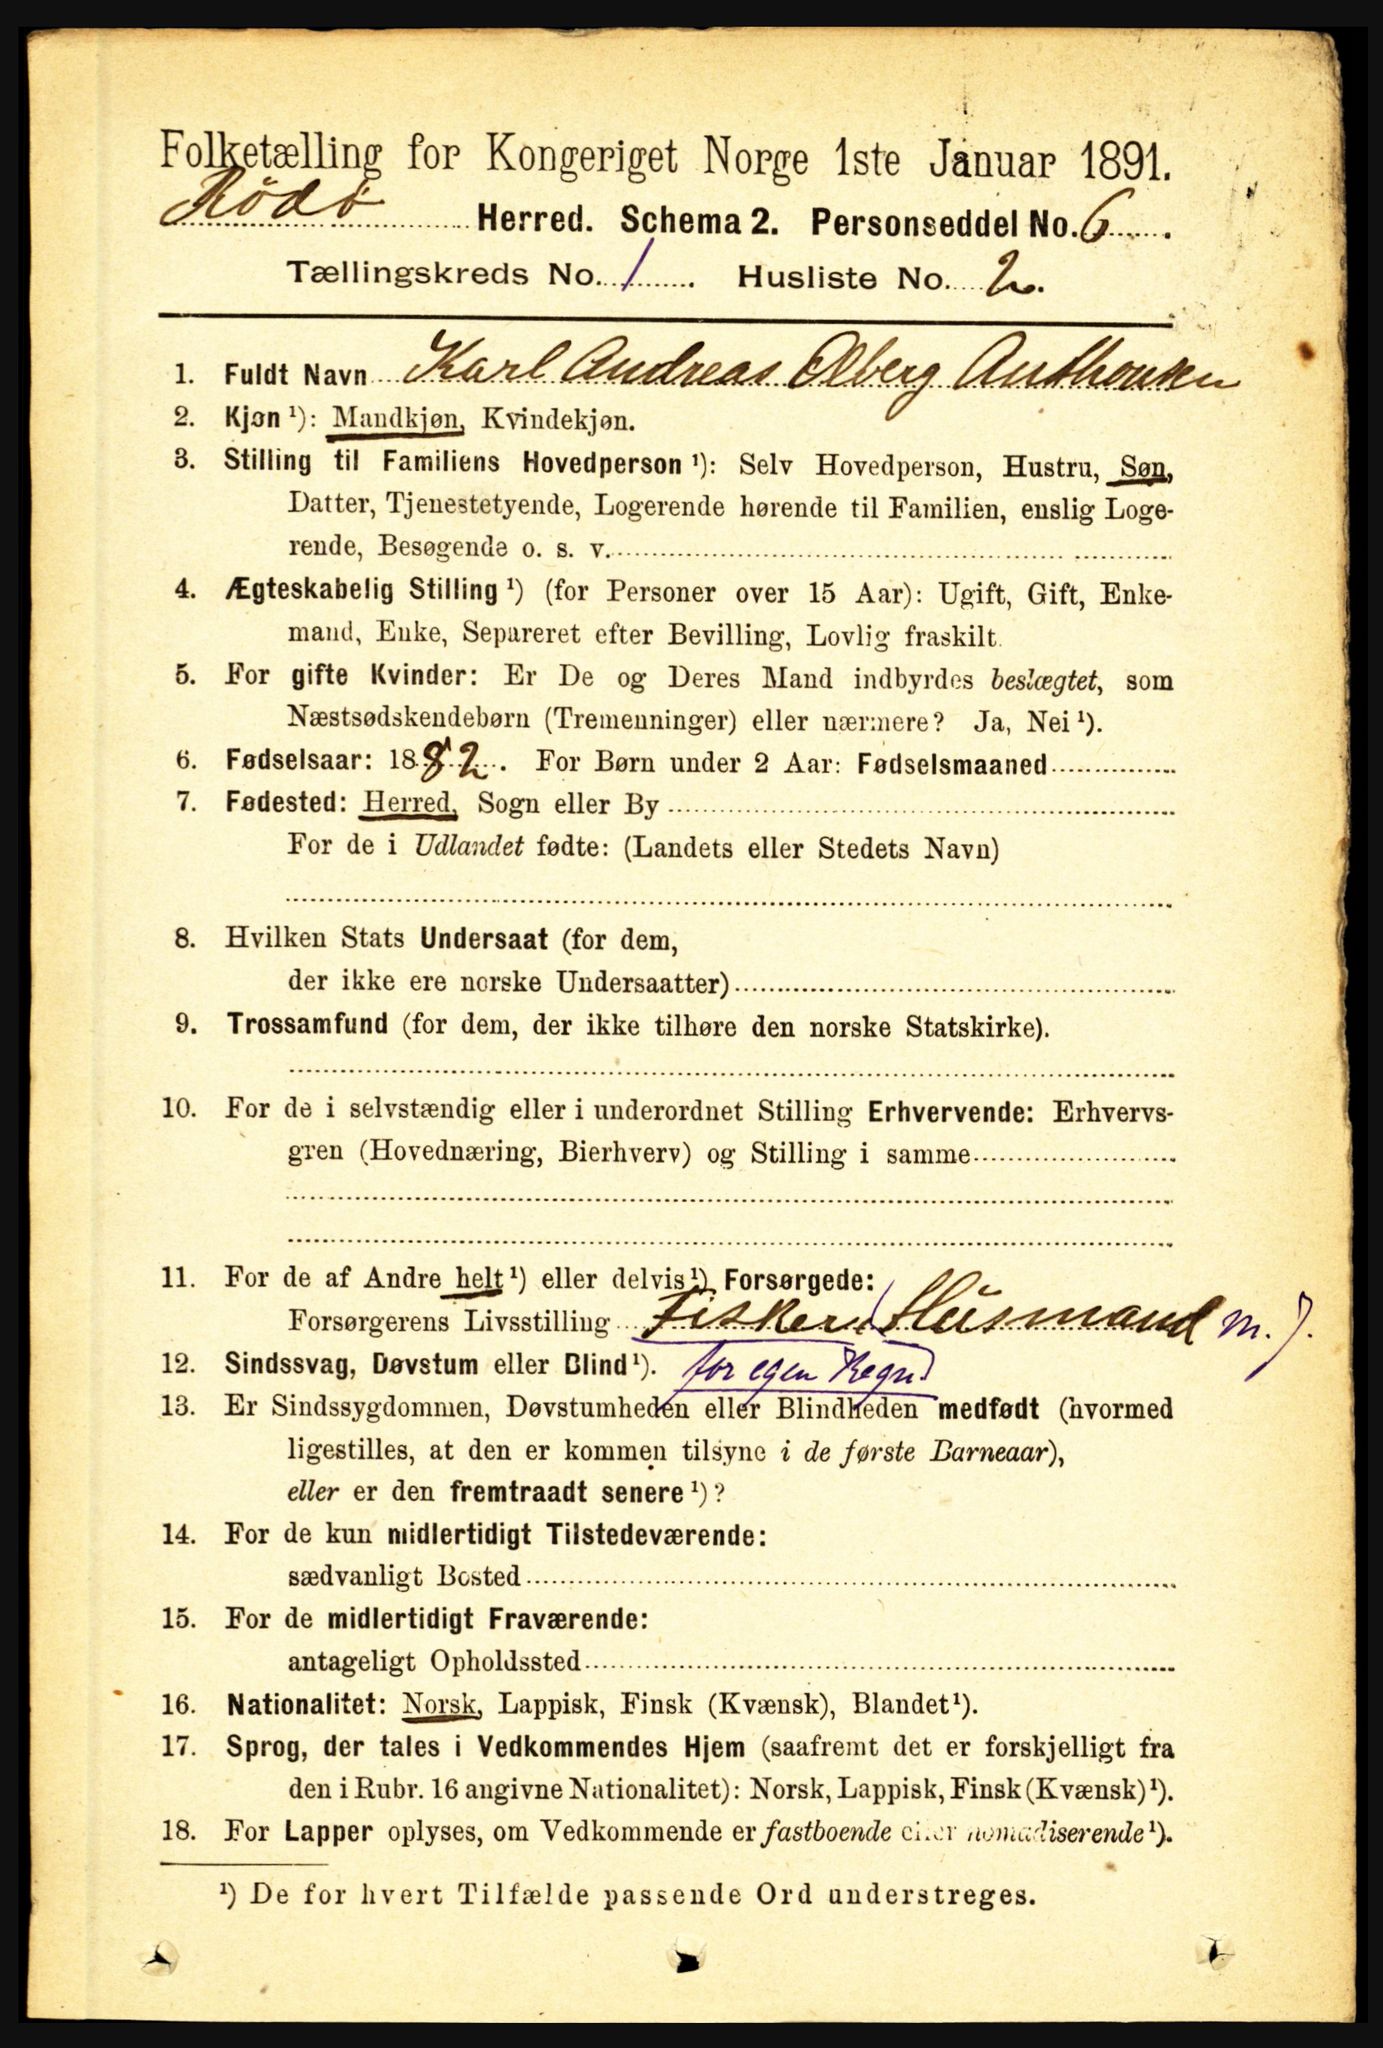 Folketælling for Kongeriget Norge 1ste Januar 1891.
Rödö Herred. Schema 2. Personseddel No. 6.
Tællingskreds No. 1. Husliste No. 2.
1. Fuldt Navn Karl Andreas Olberg Anthonsen
2. Kjøn ¹): Mandkjøn, Kvindekjøn.
3. Stilling til Familiens Hovedperson ¹): Selv Hovedperson, Hustru, Søn,
Datter, Tjenestetyende, Logerende hørende til Familien, enslig Loge-
rende, Besøgende o. s. v.
4. Ægteskabelig Stilling ¹) (for Personer over 15 Aar): Ugift, Gift, Enke-
mand, Enke, Separeret efter Bevilling, Lovlig fraskilt.
5. For gifte Kvinder: Er De og Deres Mand indbyrdes beslægtet, som
Næstsødskendebørn (Tremenninger) eller nærmere? Ja, Nei ¹).
6. Fødselsaar: 1882. For Børn under 2 Aar: Fødselsmaaned
7. Fødested: Herred, Sogn eller By
For de i Udlandet fødte: (Landets eller Stedets Navn)
8. Hvilken Stats Undersaat (for dem,
der ikke ere norske Undersaatter)
9. Trossamfund (for dem, der ikke tilhøre den norske Statskirke).
10. For de i selvstændig eller i underordnet Stilling Erhvervende: Erhvervs-
gren (Hovednæring, Bierhverv) og Stilling i samme
11. For de af Andre helt ¹) eller delvis ¹) Forsørgede:
Forsørgerens Livsstilling Fisker / Husmand m. J.
12. Sindssvag, Døvstum eller Blind ¹). for egen Regn.
13. Er Sindssygdommen, Døvstumheden eller Blindheden medfødt (hvormed
ligestilles, at den er kommen tilsyne i de første Barneaar),
eller er den fremtraadt senere ¹)?
14. For de kun midlertidigt Tilstedeværende:
sædvanligt Bosted
15. For de midlertidigt Fraværende:
antageligt Opholdssted
16. Nationalitet: Norsk, Lappisk, Finsk (Kvænsk), Blandet ¹).
17. Sprog, der tales i Vedkommendes Hjem (saafremt det er forskjelligt fra
den i Rubr. 16 angivne Nationalitet): Norsk, Lappisk, Finsk (Kvænsk) ¹).
18. For Lapper oplyses, om Vedkommende er fastboende eller nomadiserende ¹).
¹) De for hvert Tilfælde passende Ord understreges.